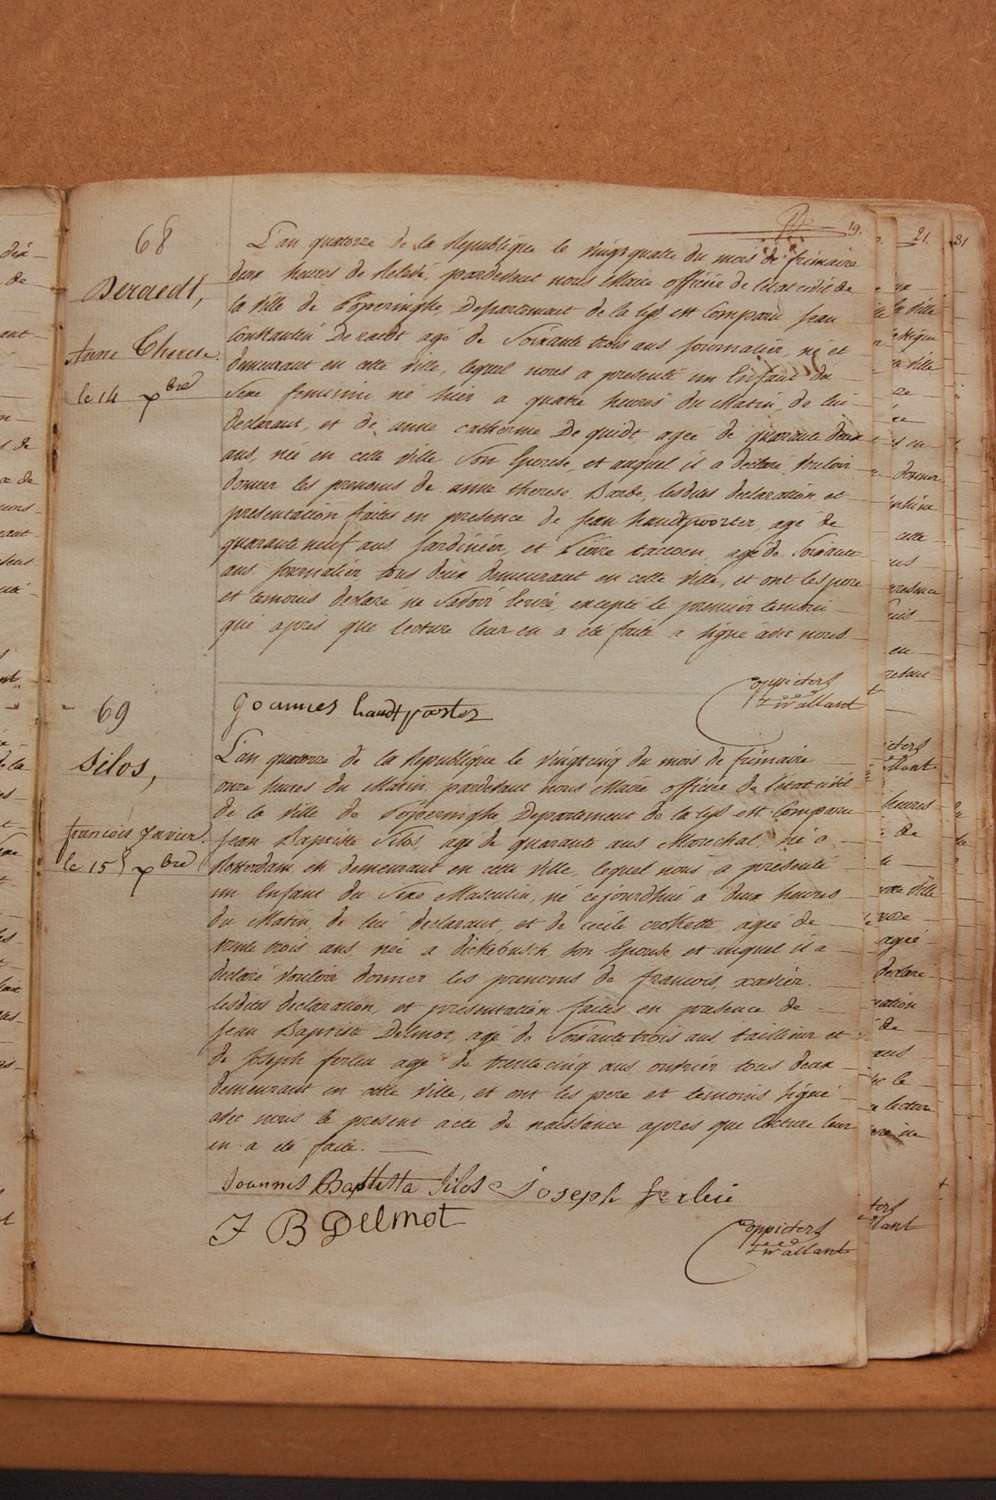 19.
68
Deraedt,
Anne Therese
le 14 xbre
L'an quatorze de la Republique le vingt quatre du mois de frimaire
deux heures de relevé, pardevant nous Maire officier de l'état civil de
la ville de Poperinghe, Departement de la Lys est comparu Jean
Constantin Deraedt agé de Soixante trois ans journalier, né et
demeurant en cette ville, lequel nous a presenté un Enfant du
Sexe feminin né hier a quatre heures du Matin, de lui
declarant, et de anne catherine De quidt, agée de quarante deux
ans, née en cette ville Son Epouse, et auquel il a declaré vouloir
donner les prenoms de anne therese, Barbe, lesdites declaration et
presentation faites en presence de Jean handtpoorter, agé de
quarante neuf ans Jardinier, et Pierre taccoen, agé de Soixante
ans journalier tous deux demeurant en cette ville, et ont les pere
et temoins declaré ne Savoir Ecrire, excepté le premier temoin
qui apres que lecture leur en a été faite a signé avec nous
Joannes handtpoorter
Coppieters
t' wallant
69
Silos,
francois Xavier
le 15 xbre
L'an quatorze de la Republique le vingtcinq du mois de frimaire
onze heures du Matin, pardevant nous Maire officier de l'état civil
de la ville de Poperinghe Departement de la Lys est comparu
Jean Baptiste Silos, agé de quarante ans Marechal, né a
Rotterdam et demeurant en cette ville, lequel nous a presenté
un Enfant du Sexe Masculin, né cejourdhui a deux heures
du Matin, de lui declarant, et de cecile crokette, agée de
trente trois ans, née a dickebusch Son Epouse et auquel il a
declaré vouloir donner les prenoms de francois, xavier.
lesdites declaration, et presentation faites en presence de
Jean Baptiste Delmot, agé de Soixante trois ans tailleur et
de Joseph ferlin agé de trente cinq ans ouvrier tous deux
demeurant en cette ville, et ont les pere et temoins signé
avec nous le present acte de naissance apres que lecture leur
en a été faite.
Joannes Baptista Silos Joseph ferlin
J B Delmot
Coppieters
t' wallant
21.
31